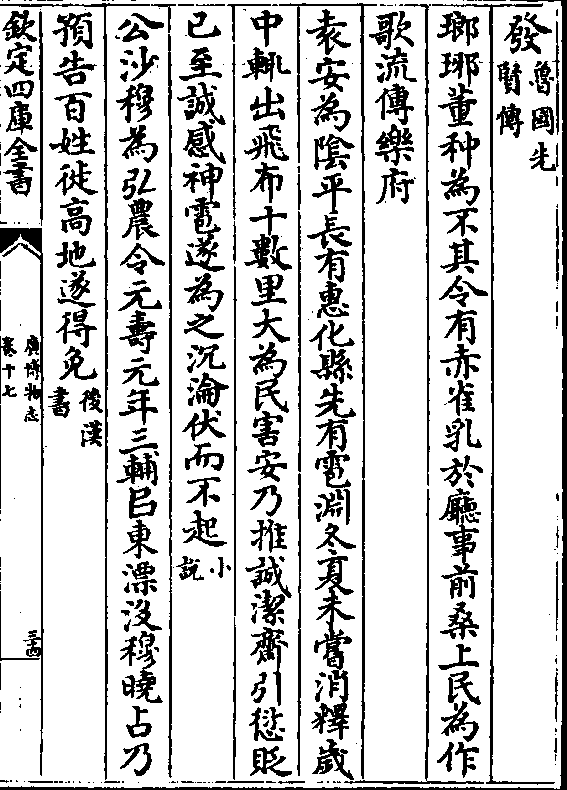 發魯國先賢傳
瑯琊董种為不其令有赤雀乳於廳事前桑上民為作
歌流傳樂府
袁安為陰平長有惠化縣先有雹淵冬夏未嘗消釋歲
中輒出飛布十數里大為民害安乃推誠潔齋引愆貶
已至誠感神雹遂為之沉淪伏而不起小說
公沙穆為弘農令元壽元年三輔㠯東漂没穆曉占乃
預告百姓徙高地遂得免後漢書
欽定四庫全書
廣博物志
卷十七
三十四